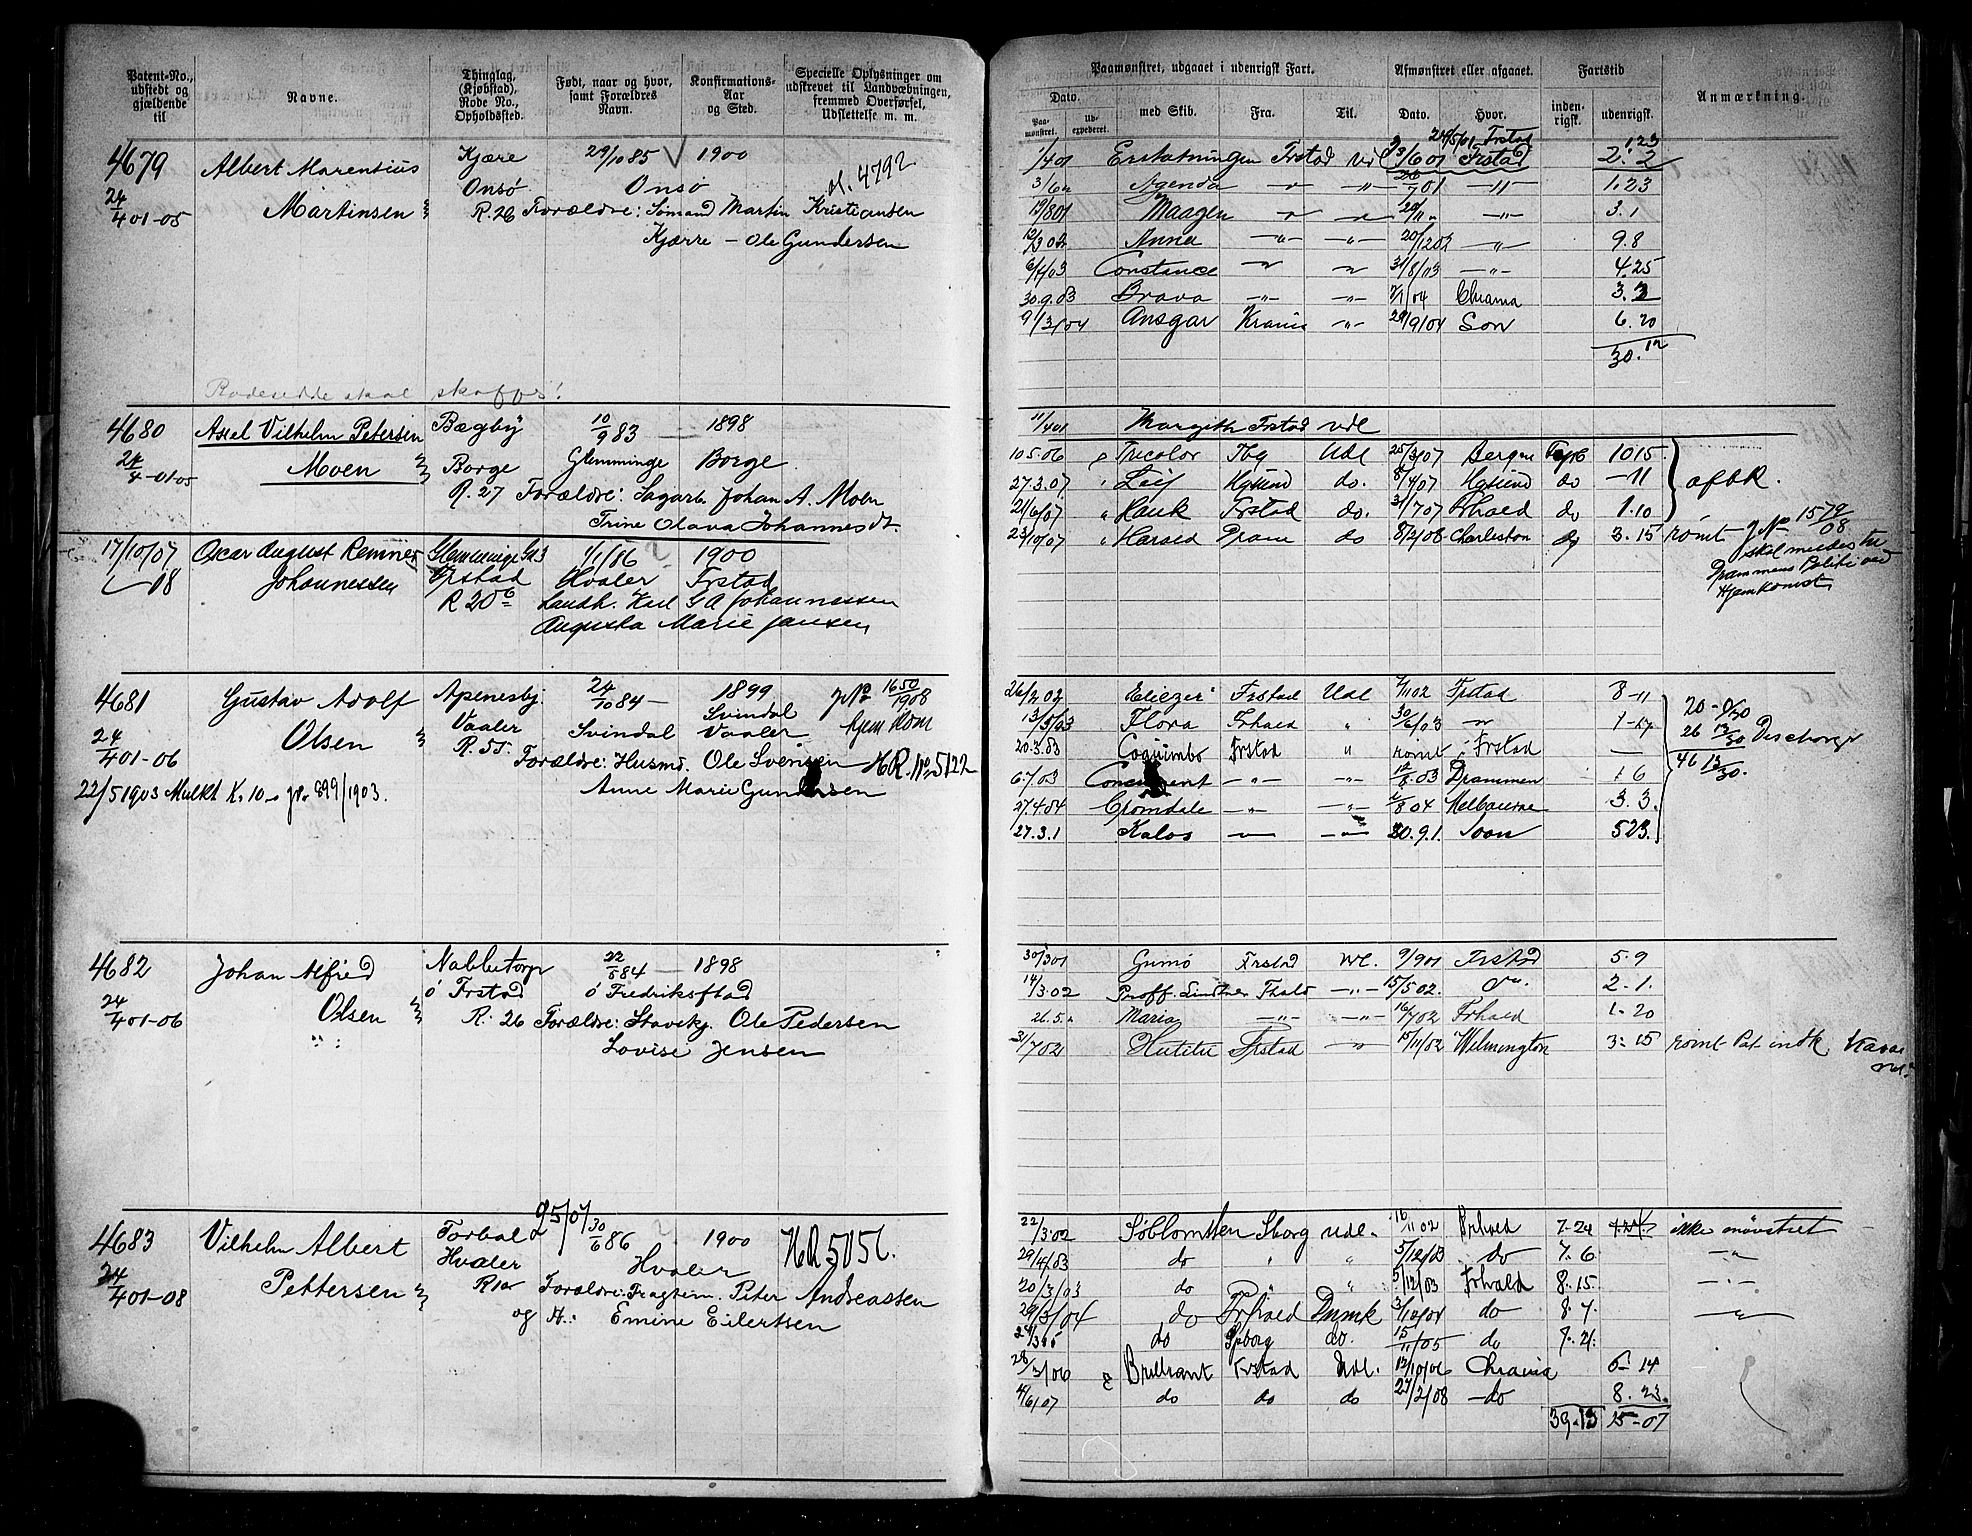 Patent-No., udstedt og gjældende til
Navne.
Thinglag, (Kjøbstad), Rode No., Opholdssted.
Født, naar og hvor, samt Forældres Navn.
Konfirmations-Aar og Sted.
Specielle Oplysninger om udskrevet til Landværnningen, fremmed Oversørsel, Udslettelse m. m.
4679 Albert Marensius Kjære 29/10 85 1900 ol. 4792
24/4 01-05 Martinsen Onsø Onsø
R. 26 Forældre: Sømand Martin Kristiansen
Kjærre - Ole Gundersen
Rodesedde skal skaffes!
4680 Axel Vilhelm Petersen Bægby 10/9 83 — 1898
24/4-01-05 Moen Borge Glemminge Borge
R. 27 Forældre: Sagarb. Johan A. Moen
Trine Olava Johannesdt.
17/10/07 Oscar August Remner Glemminge 1/1/86 1900
08 Johannessen Frstad Hvaler Frstad
R 206 Landh. Karl G A Johannessen
Augusta Marie Jansen
4681 Gustav Adolf Apenesbj. 24/10 84 — 1899 jNo 1650/1908
24/4 01-06 Olsen Vaaler Svindal Svindal Vaaler hjem kom
R. 55 Forældre: Husmd. Ole Svensen H.R. No. 5122
22/5 1903 Mulkt K. 10 - jNo 899/1903. Anne Marie Gundersen
4682 Johan Alfred Nabbetorp 22/5 84 — 1898
24/4 01-06 Olsen ó Frstad ó Fredriksstad
R. 26 Forældre: Stavskj. Ole Pedersen
Lovise Jensen
4683 Vilhelm Albert Hvaler 30/6 86 1900 HR 5151.
24/4 01-08 Pettersen Hvaler
Forældre: Peter Andreassen
og H.: Emine Eilertsen
Paamønstret, udgaaet i udenrigsk Fart.
Afmønstret eller afgaaet.
Fartstid
Dato.
Paamønstret. Udexpederet. med Skib. Fra. Til. Dato. Hvor. indenrigsk. udenrigsk. Anmærkning.
24/5/01 Frstad 1.23
1/4 01 Erstatningen Frstad Udl 23/6 01 Frstad 2. 2
3/6 01 Agenda — " — " 26/7 01 — " — 1.23
19/8 01 Maagen 20/11 " — " — 3. 1
12/3 02 Anna — " — — " — 20/12 02 — " — 9.8
6/4/03 Constance 31/8/03 — " — 4.25
30.9.03 Brava — " — — " — 7/1/04 Chiania 3.3
9/3/04 Ansgar Krania — " — 29/9/04 Son 6.20
30.12
11/4 01 Margith Frstad Udl
10 5.06 Tricolor Tbg Udl 25/3/07 Bergen 10 15
27.3.07 Leif Hgsund do. 8/4/07 Hgsund do — 11 afbk.
21/6/07 Hauk Frstad do. 31/7/07 Frhald do 1.10
23/10/07 Harald Dram do 8/2/08 Charleston do 3.15 rømt jNo 1579/08
skal meldes til
Drammens Politi ved
Hjemkomst
26/2 02 Eliezer Frstad Udl 7/11 02 Frstad 8-11
13/5/03 Flora Frhald " 30/6/03 1-17
20.3.03 Coquimbo Frstad " rømt Frstad —
6.7.03 Concurrent — " — — " — 12/8.03 Drammen 1 6
27.4.04 Glomdale — " — — " — 8 04 Melbourne 3. 3.
27.3.1 Kalos — — " — 30.9.1. Soon 523.
20 - 0/30
26 13/30 Discharge
46 13/30.
30/3 01 Gumø Frstad Udl. 9/9 01 Frstad 5.9
14/3.02 Proff. Lindtner Thald — " — 15/5 02. 2-1.
21.5. " Maria — " — — " — 16/7 02 Frhald 1-20
31/7 02 Frstad 15/11/02 Wilmington 3-15 rømt Pat indk
22/3 02 Søblomsten Sborg udl. 16/11 02 Frhald 7-24 ikke mønstret
29/4/03 do " " 5/12/03 do 7. 6 — " —
20/3/03 do " " 5/12/03 Frhald 8.15. — " —
29/3/04 do Frhald Dnmk 3/12/04 do 8.7. — " —
do Spborg do. 15/11/05 do 7.21.
28/3/06 Brilliant Frstad Udl. 12/10/06 Chrania 6-14
4/6/07 do do do 27/2/08 — do 8.23.
39-13 15-07